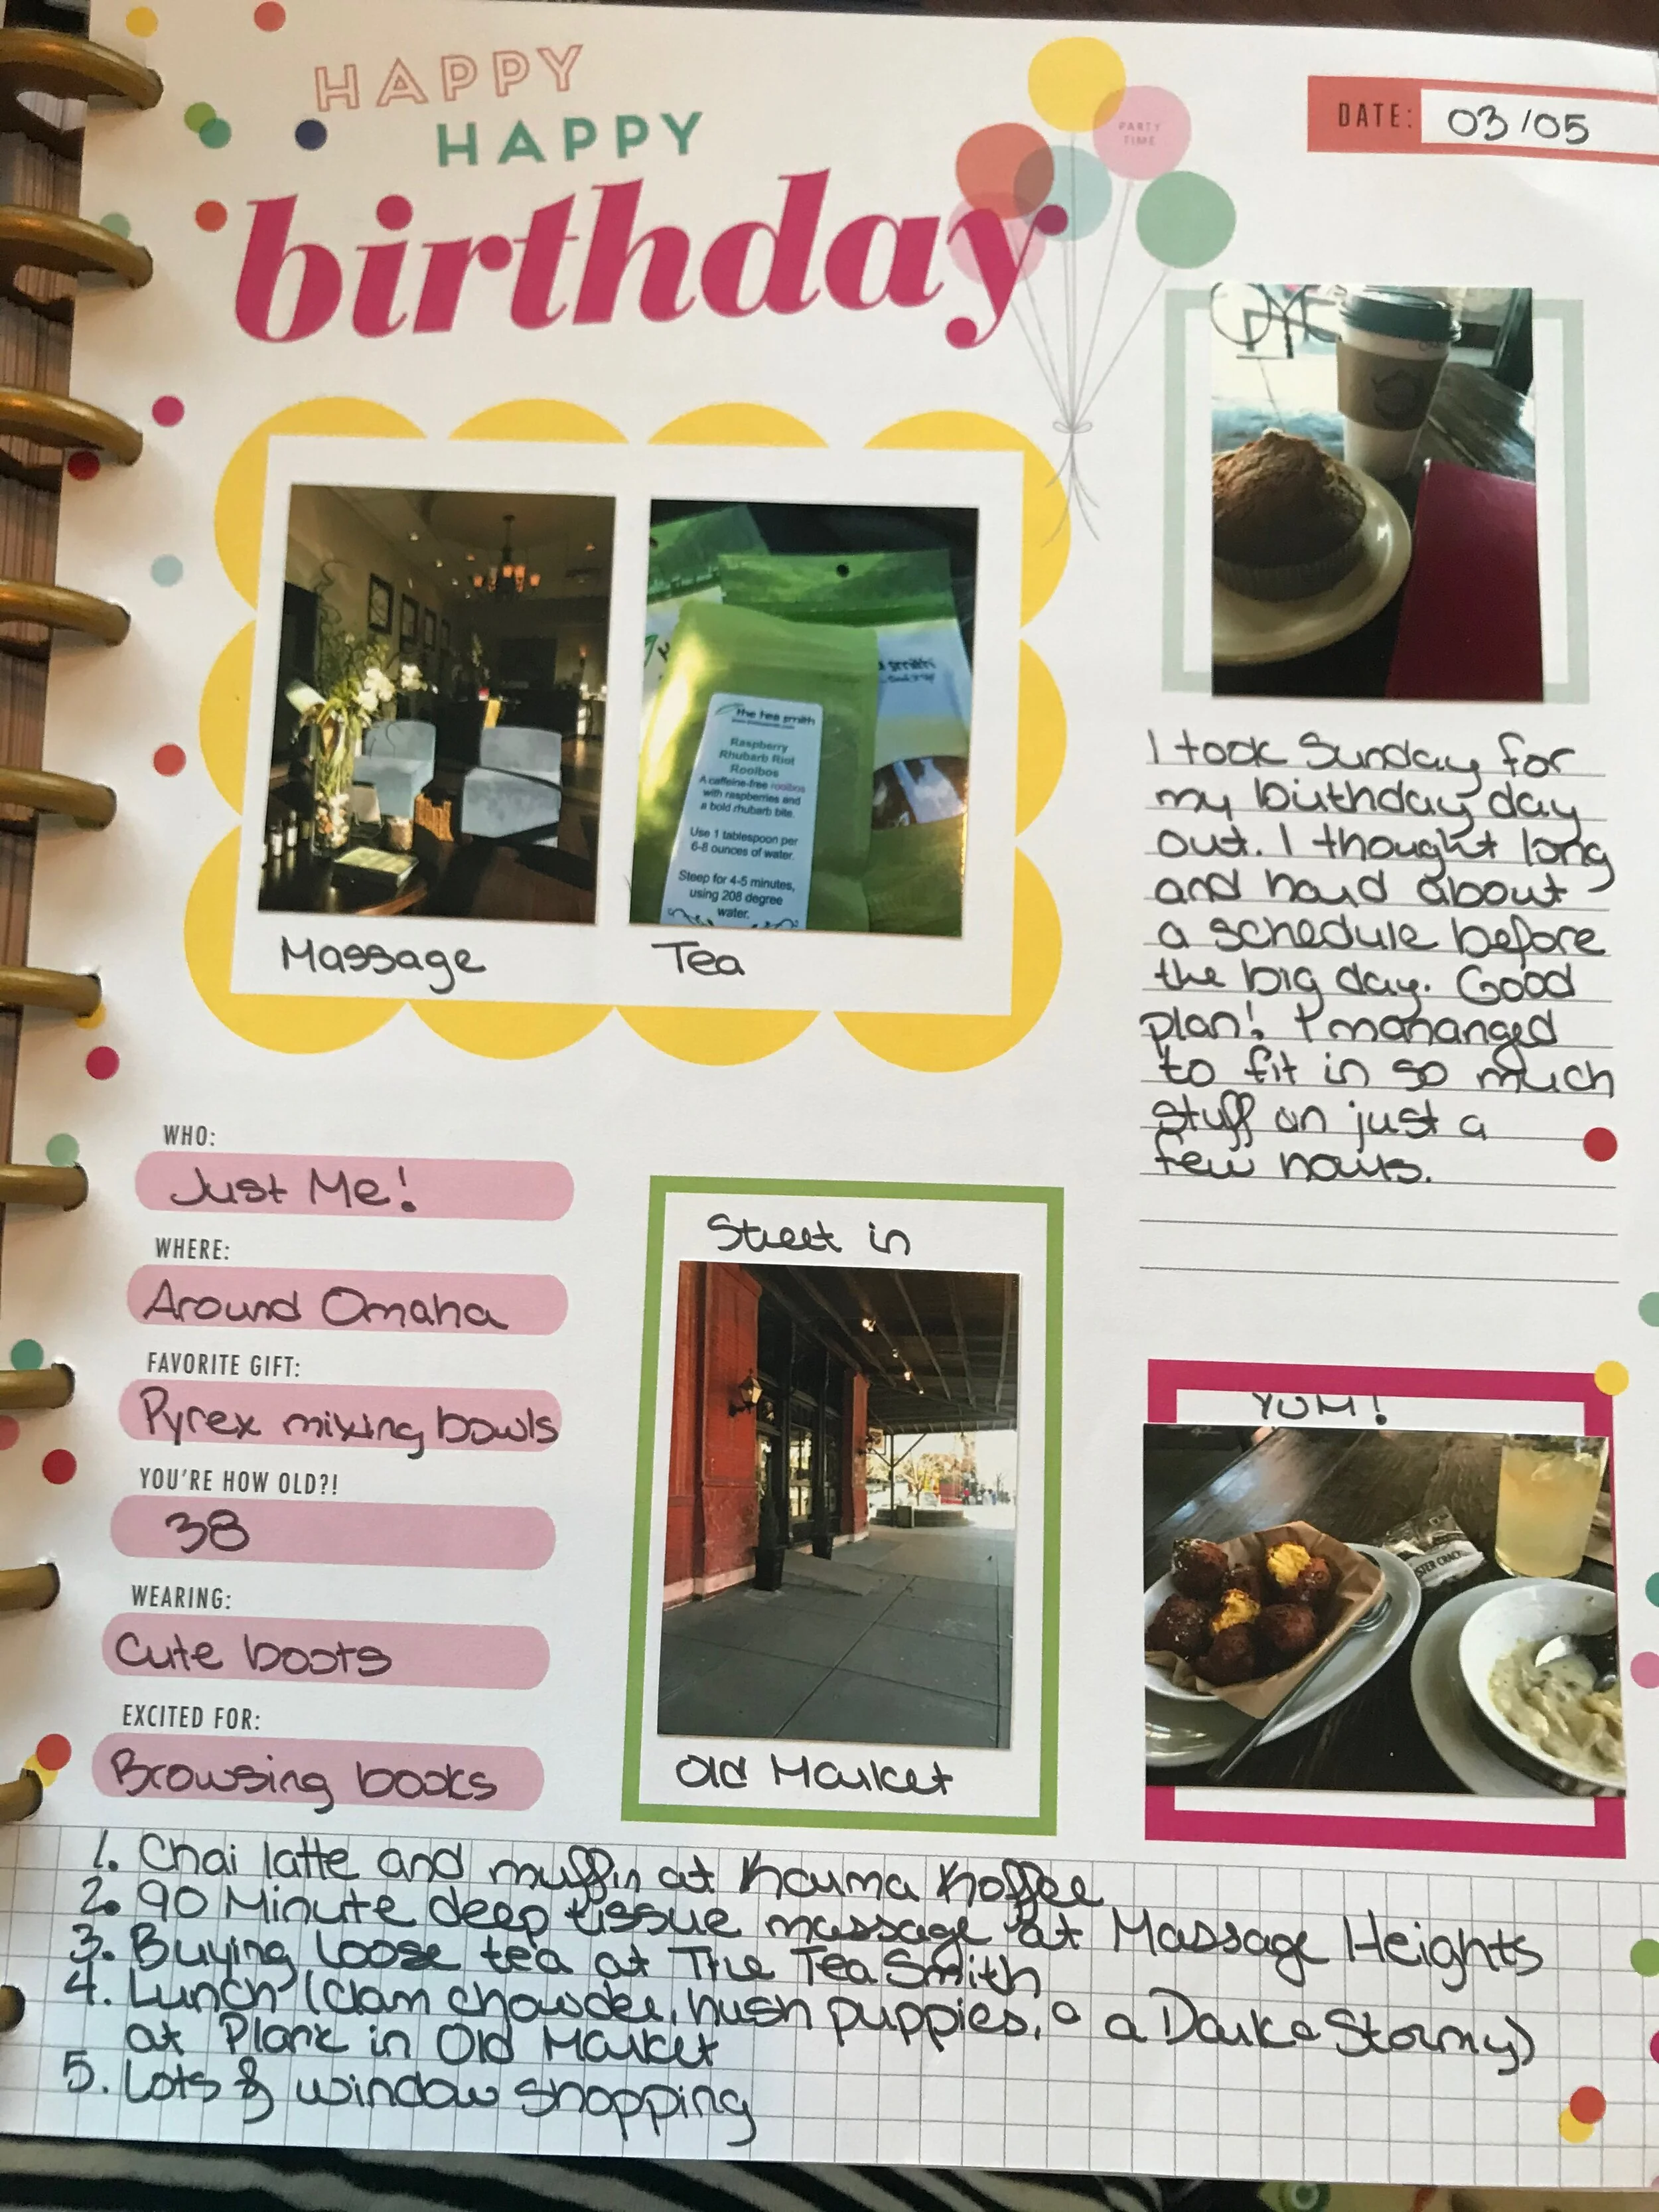 HAPPY
HAPPY
birthday
PARTY
TIME
DATE: 03/05
the tea smith
Raspberry
Rhubarb Riot
Rooibos
A caffeine-free rooibos
with raspberries and
a bold rhubarb bite.
Use 1 tablespoon per
6-8 ounces of water.
Steep for 4-5 minutes,
using 208 degree
water.
Massage
Tea
I took Sunday for
my birthday day
out. I thought long
and hard about
a schedule before
the big day. Good
plan! I mananged
to fit in so much
stuff on just a
few hours.
WHO:
Just Me!
WHERE:
Around Omaha
FAVORITE GIFT:
Pyrex mixing bowls
YOU'RE HOW OLD?!
38
WEARING:
Cute boots
EXCITED FOR:
Browsing books
Street in
Old Market
YUM!
1. Chai latte and muffin at Karma Koffee
2. 90 Minute deep tissue massage at Massage Heights
3. Buying loose tea at The Tea Smith
4. Lunch (clam chowder, hush puppies, a Dark & Stormy)
at Plank in Old Market
5. Lots of window shopping